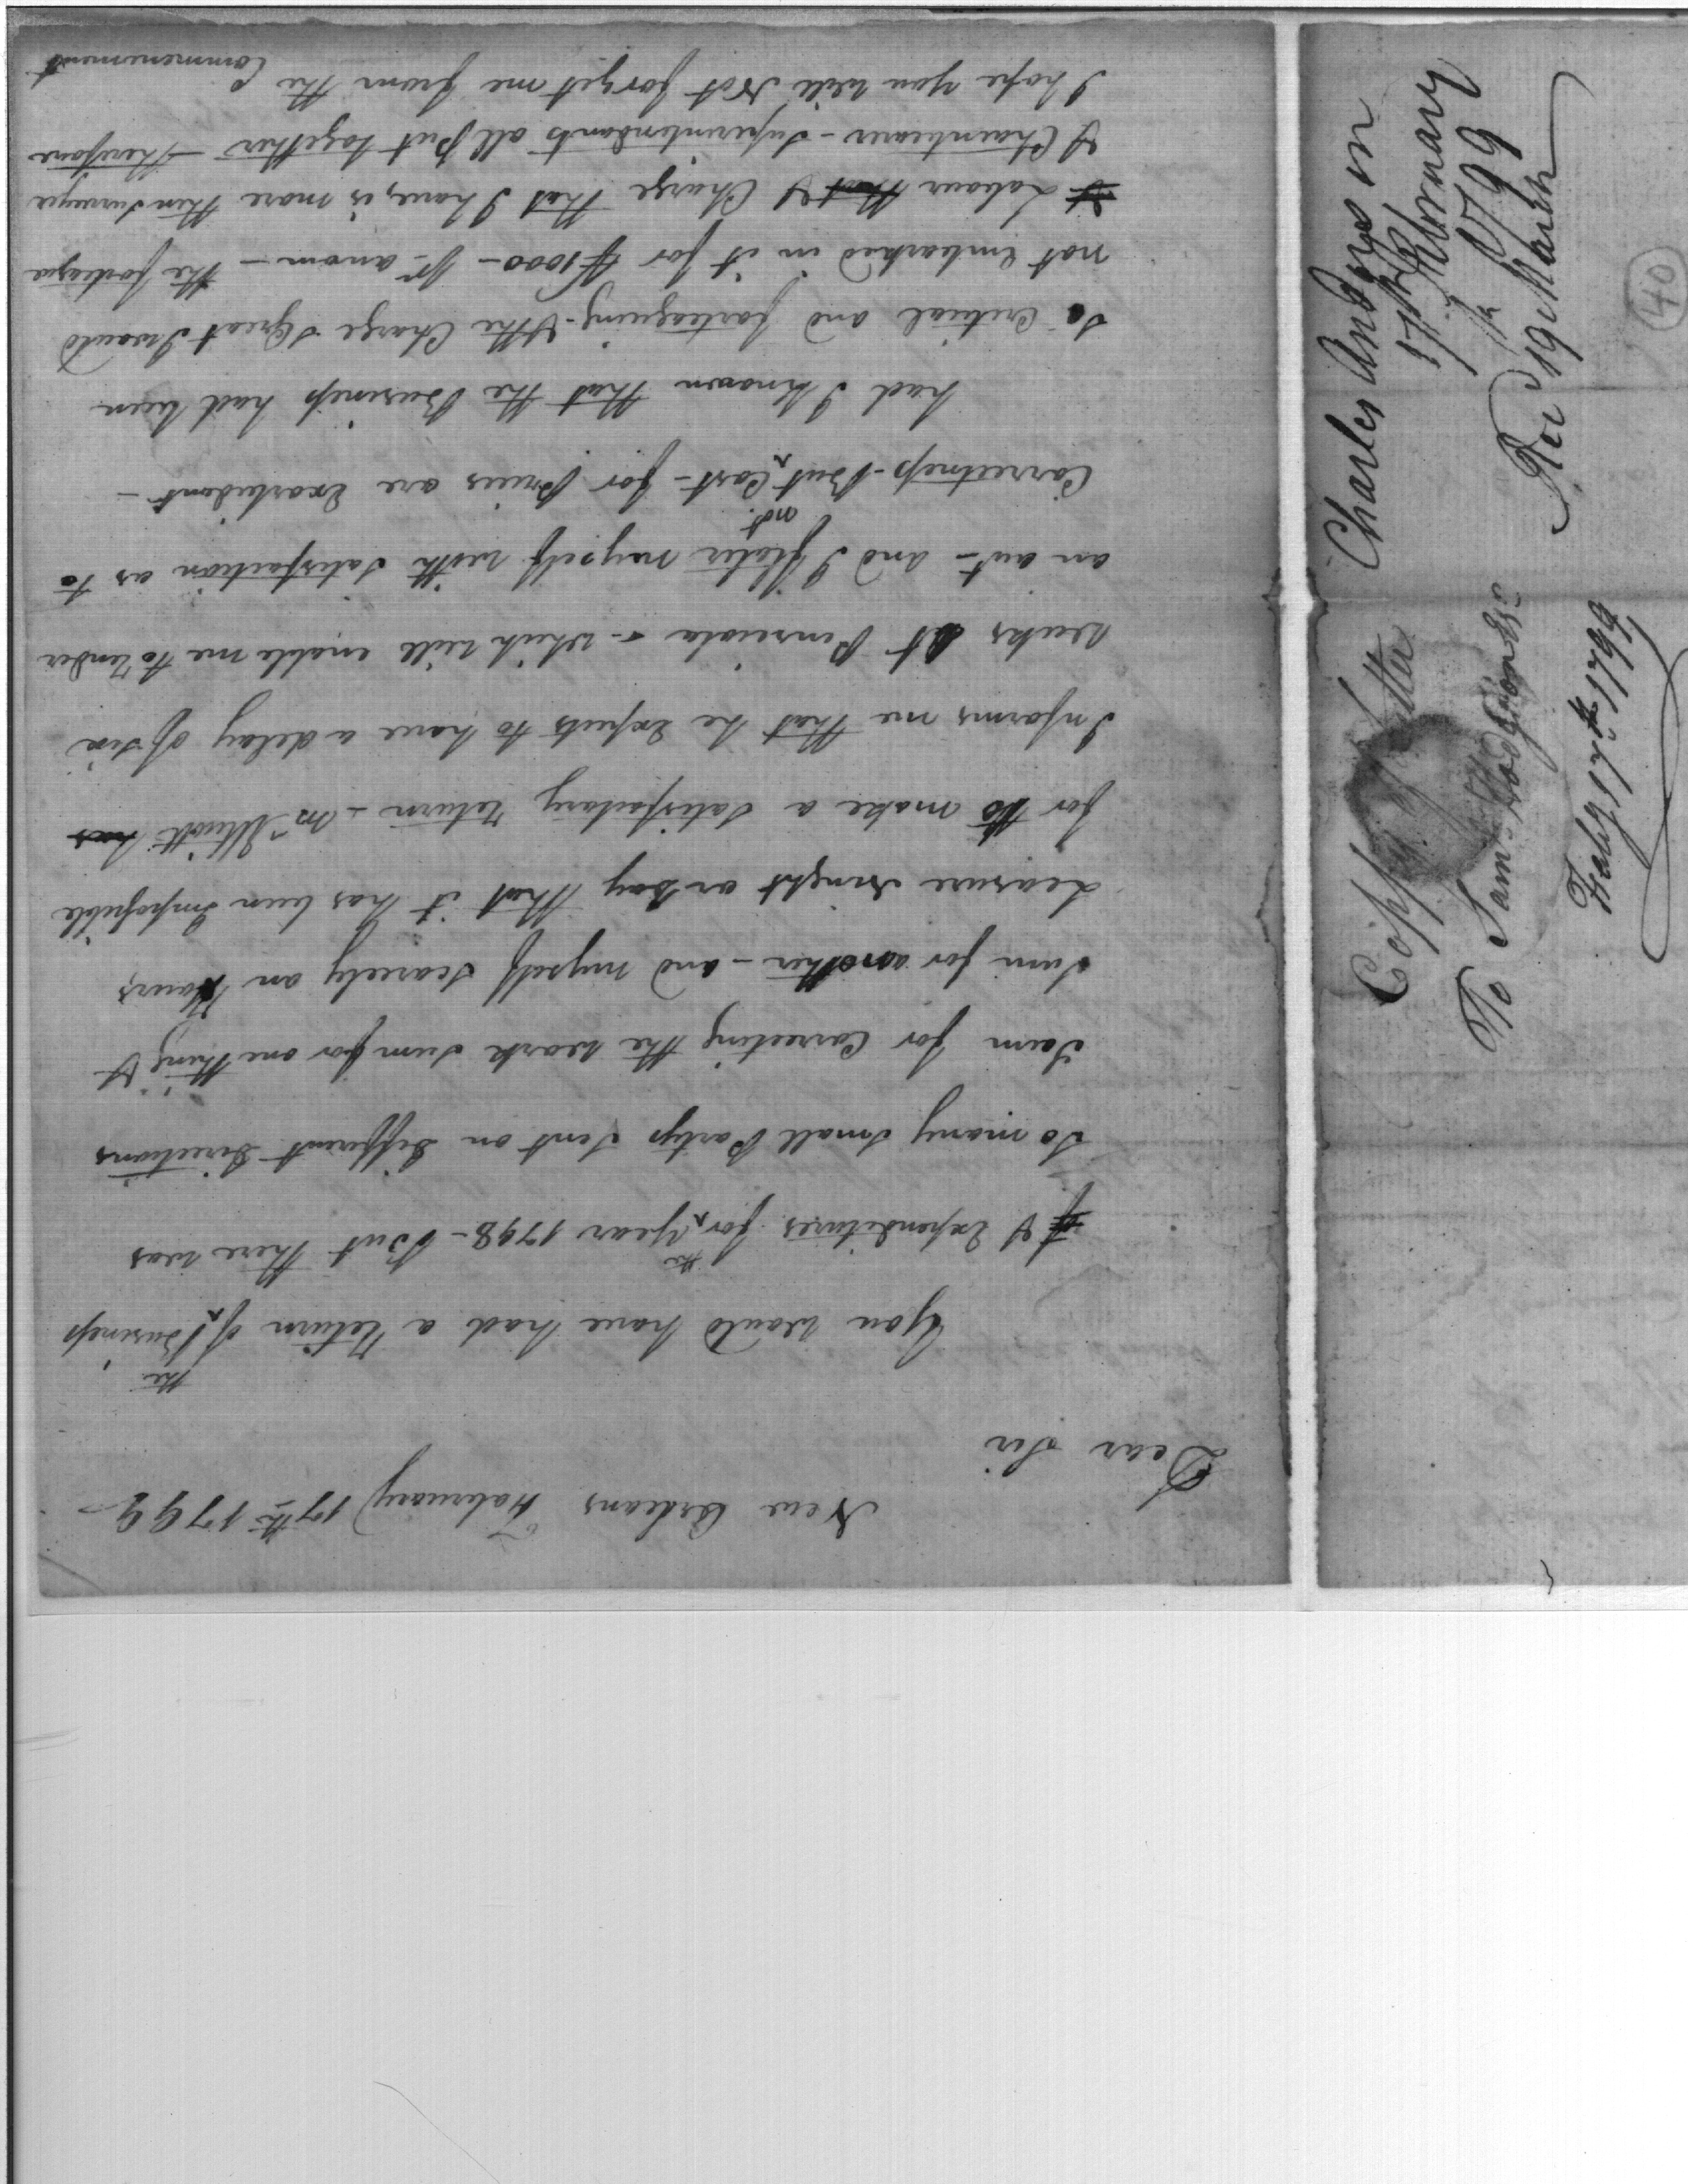 New Orleans Febuary 17th 1799
Dear Sir
You would have had a Return of the Business
& Expenditures for the Year 1798 - But there was
So many Small Partys Sent on different directions
Sum for Correcting the work Sum for one thing &
Sum for another - and myself Scarcely an Hours
Leasure Night or day that it has been Impossible
for to make a Satisfactory Return - Mr Ellicott has
Informs me that he Expects to have a delay of Six
weeks At Pensicola - which will enable me to Render
an act - and I flater myself with Satisfaction as to
Correctness - But not Cost - for Prices are Exorbidant -
had I known that the Business had been
So Critical and farteaguing - & the Charge So Great I would
not Imbarked in it for $ 1000 - pr anom - the farteague
& Labour that & Charge that I have, is more then Surveyor
& Chainbearer - Superintendants all Put together - therefore
I hope You will Not forget me from the Commencement
Charles Anderson
17th February
1799
Recd 19th March
Copy of Letter
To Saml Hodgdon Esqr
Feby 17th 1799
40